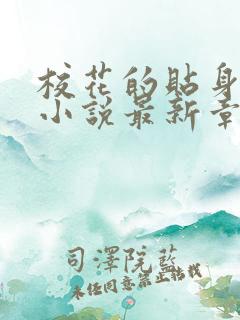 校花的貼身
小説最新章
司澤院藍
未任同意禁止